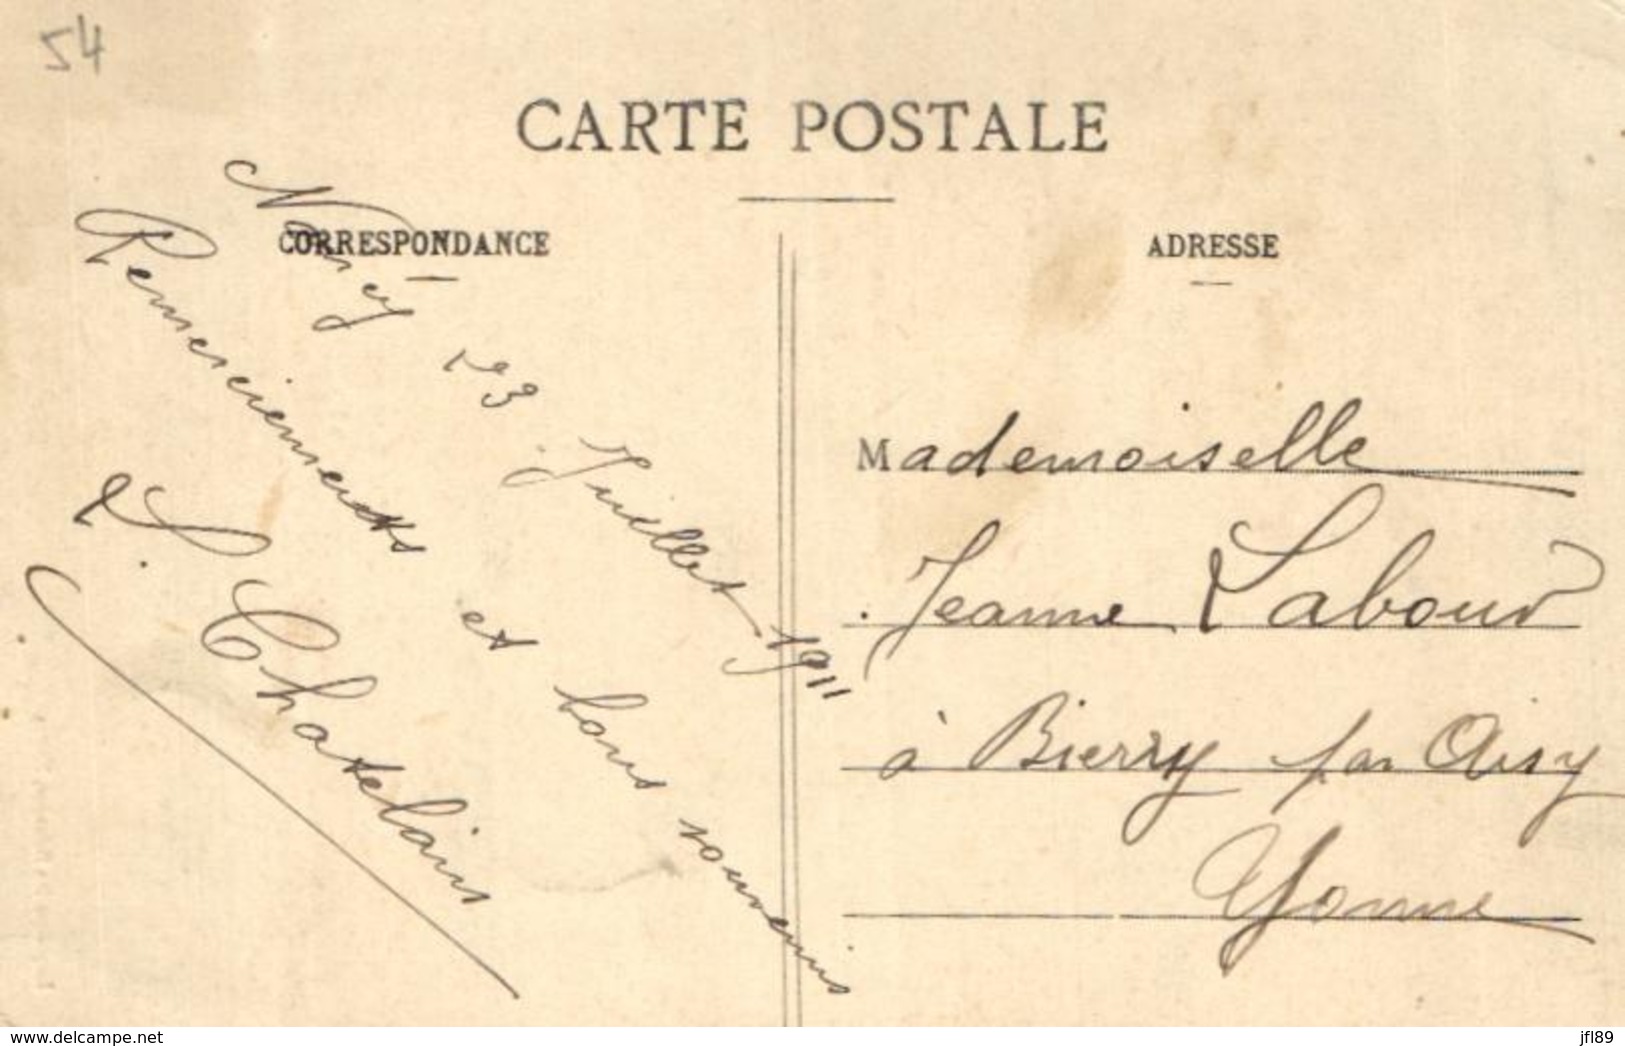 54
CARTE POSTALE
CORRESPONDANCE
ADRESSE
Nancy 23 Juillet 1911
Remerciements et bons souvenirs
Chatelain
Mademoiselle
Jeanne Labour
à Bierry par Aisy
Yonne
www.delcampe.net
jfl89